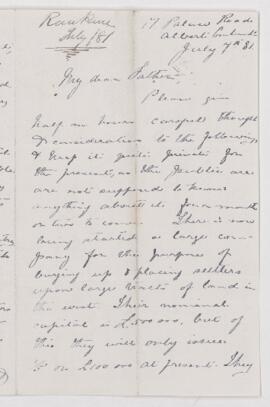 Rankine
July /81
17 Palace Road
Albert Embankt
July 7th 81.
My dear Father
Please give
half an hours careful thought
& consideration to the following
& keep it quite private for
the present, as the public are
are not supposed to know
anything about it for a month
or two to come. There is now
being started a large com-
pany for the purpose of
buying up & placing settlers
upon large tracts of land in
the west. Their nominal
capital is £500000, but of
this they will only issue
on £100000 at present. They